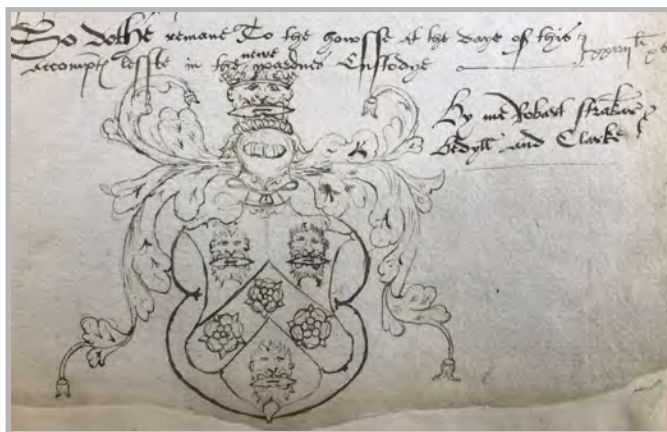 So dothe remane To the howsse at the daye of this
accompte lefte in the newe wardens Custodye
By me Robart Straker
Bedyll and Clarke